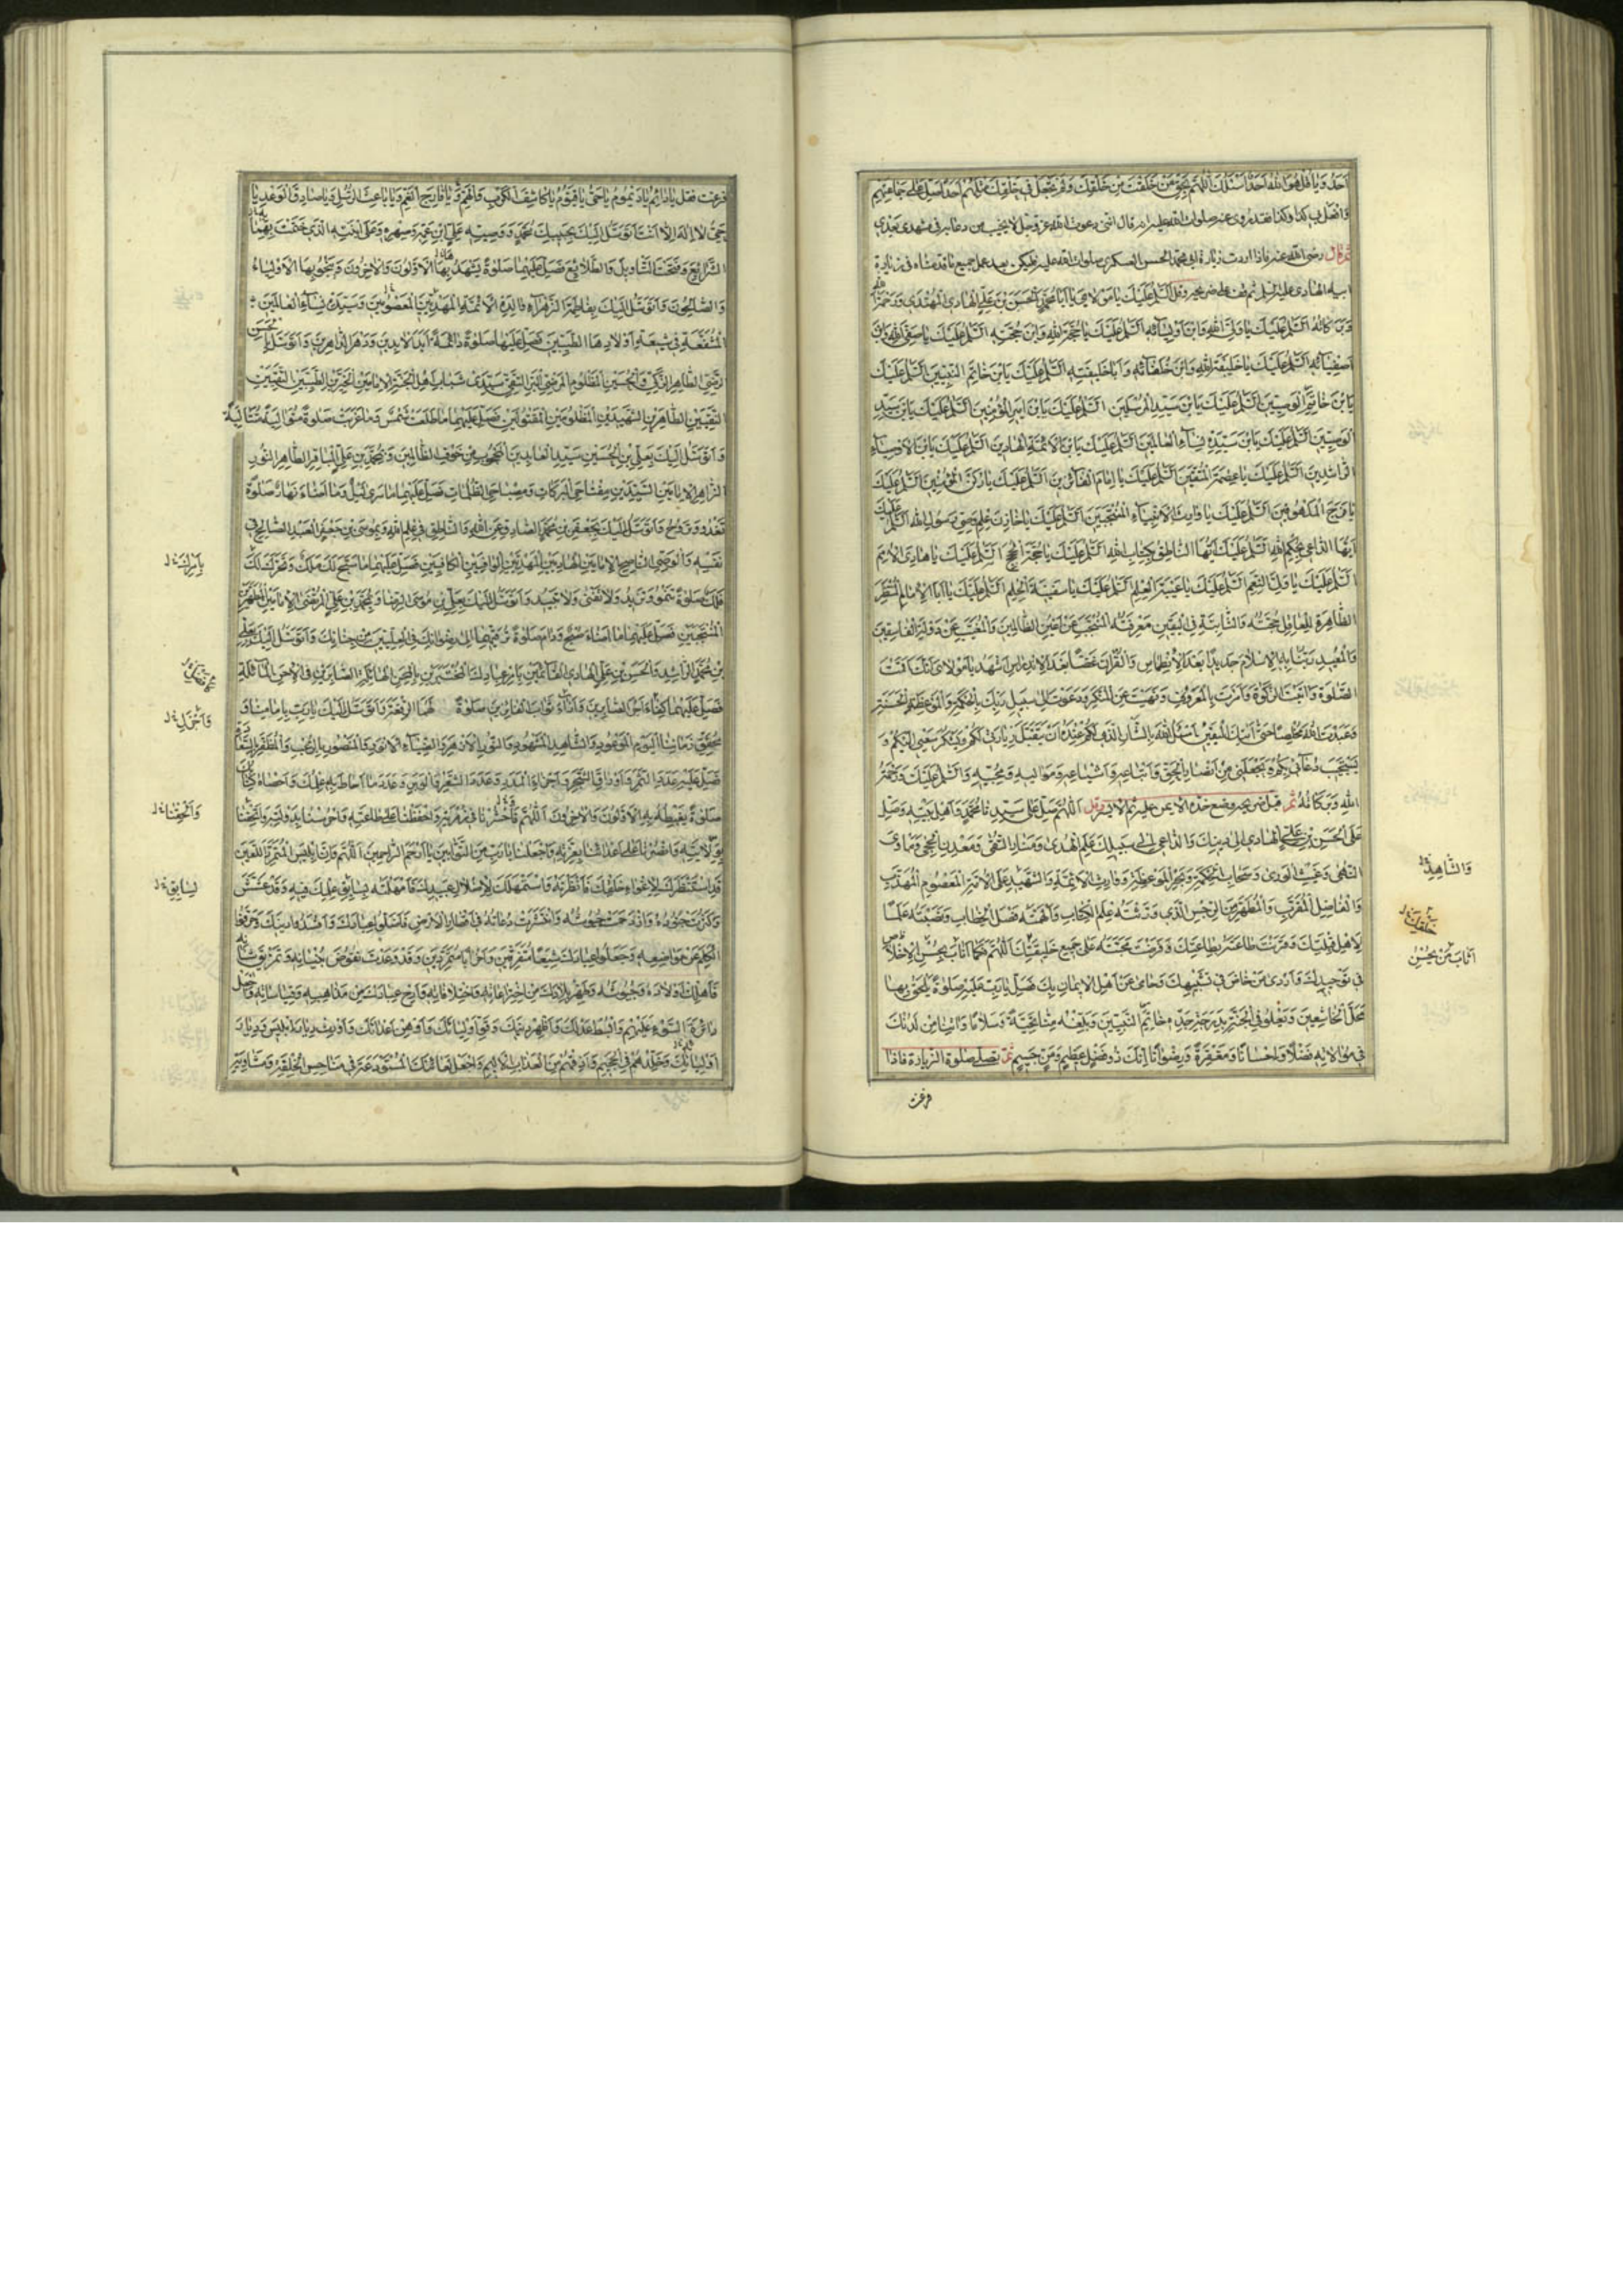 احد ويا قل هو الله احد اسئلك اللهم بحق من خلقت من خلقك ولم تجعل في خلقك مثلهم احدا صل على جماعتهم
وافعل بي كذا وكذا فقد روي عنه صلوات الله عليه انه قال انني دعوت الله عز وجل لا يخيب من دعا به في مشهدي بعدي
ثم قال رضي الله عنه فاذا اردت زيارة ابي محمد الحسن العسكري صلوات الله عليه فليكن بعد عمل جميع ما قدمناه في زيارة
ابيه الهادي عليه السلم ثم قف على ضريحه وقل السلم عليك يا مولاي يا ابا محمد الحسن بن علي الهادي المهتدي ورحمة الله
وبركاته السلم عليك يا ولي الله وابن اوليائه السلم عليك يا حجة الله وابن حججه السلم عليك يا صفي الله وابن
اصفيائه السلم عليك يا خليفة الله وابن خلفائه وابا خليفته السلم عليك يابن خاتم النبيين السلم عليك
يابن خاتم الوصيين السلم عليك يابن سيد المرسلين السلم عليك يابن امير المؤمنين السلم عليك يابن سيد
الوصيين السلم عليك يابن سيدة نساء العالمين السلم عليك يابن الائمة الهادين السلم عليك يابن الاوصياء
الراشدين السلم عليك يا عصمة المتقين السلم عليك يا امام الفائزين السلم عليك يا ركن المؤمنين السلم عليك
يا فرج الملهوفين السلم عليك يا وارث الانبياء المنتجبين السلم عليك يا خازن علم وصي رسول الله السلم عليك
ايها الداعي بحكم الله السلم عليك ايها الناطق بكتاب الله السلم عليك يا حجة الحجج السلم عليك يا هادي الامم
السلم عليك يا ولي النعم السلم عليك يا عيبة العلم السلم عليك يا سفينة الحلم السلم عليك يا ابا الامام المنتظر
الظاهرة للعاقل حجته والثابتة في اليقين معرفته المحتجب عن اعين الظالمين والمغيب عن دولة الفاسقين
والمعيد ربنا به الاسلام جديدا بعد الانطماس والقران غضا بعد الاندراس اشهد يا مولاي انك اقمت
الصلوة واتيت الزكوة وامرت بالمعروف ونهيت عن المنكر ودعوت الى سبيل ربك بالحكمة والموعظة الحسنة
وعبدت الله مخلصا حتى اتيك اليقين اسئل الله بالشان الذي لكم عنده ان يتقبل زيارتي لكم ويشكر سعيي اليكم و
يستجيب دعائي بكم ويجعلني من انصار الحق واتباعه واشياعه ومواليه ومحبيه والسلم عليك ورحمة
الله وبركاته ثم قبل ضريحه وضع خدك الايمن عليه ثم الايسر وقل اللهم صل على سيدنا محمد واهل بيته وصل
على الحسن بن علي الهادي الى دينك والداعي الى سبيلك علم الهدى ومنار التقى ومعدن الحجى وماوى
النهى وغيث الورى وسحاب الحكمة وبحر الموعظة ووارث الائمة والشهيد على الامة المعصوم المهذب
والفاضل المقرب والمطهر من الرجس الذي ورثته علم الكتاب والهمته فصل الخطاب ونصبته علما
لاهل قبلتك وقرنت طاعته بطاعتك وفرضت محبته على جميع خليقتك اللهم فكما اناب بحسن الاخلاص
في توحيدك واردى من خاض في تشبيهك وحامى عن اهل الايمان بك فصل يا رب عليه صلوة يلحق بها
محل الخاشعين ويعلو في الجنة بدرجة جده خاتم النبيين وبلغه منا تحية وسلاما واتنا من لدنك
في موالاته فضلا واحسانا ومغفرة ورضوانا انك ذو فضل عظيم ومن جسيم ثم تصلي صلوة الزيارة فاذا
فرغت
والشاهد خ ل
خليقتك خ ل
اناب من بحسن
فرغت فقل يا دائم يا ديموم يا حي يا قيوم يا كاشف الكرب والهم ويا فارج الغم ويا باعث الرسل ويا صادق الوعد يا
حي لا اله الا انت اتوسل اليك بحبيبك محمد ووصيه علي ابن عمه وصهره وعلى ابنته الذي ختمت بهما
الشرايع وفتحت التاويل والطلايع فصل عليهما صلوة يشهد بها الاولون والاخرون وينجو بها الاولياء
والصالحون واتوسل اليك بفاطمة الزهراء والدة الائمة المهديين المعصومين وسيدة نساء العالمين
المشفعة في شيعة اولادها الطيبين فصل عليها صلوة دائمة ابد الابدين ودهر الداهرين واتوسل اليك بالحسن
رضي الطاهر الزكي والحسين المظلوم المرضي البر التقي سيدي شباب اهل الجنة الامامين الخيرين الطيبين التقيين
النقيين الطاهرين الشهيدين المظلومين المقتولين فصل عليهما ما طلعت شمس وما غربت صلوة متوالية متتالية
واتوسل اليك بعلي بن الحسين سيد العابدين المحجوب من خوف الظالمين وبمحمد بن علي الباقر الطاهر النور
الزاهر الامامين السيدين مفتاحي البركات ومصباحي الظلمات فصل عليهما ما سرى ليل وما اضاء نهار صلوة
تغدو وتروح واتوسل اليك بجعفر بن محمد الصادق عن الله والناطق في علم الله وبموسى بن جعفر العبد الصالح في
نفسه والوصي الناصح الامامين الهاديين المهديين الوافيين الكافيين فصل عليهما ما سبح لك ملك وتحرك لك
فلك صلوة تنمو وتزيد ولا تفنى ولا تبيد واتوسل اليك بعلي بن موسى الرضا وبمحمد بن علي المرتضى الامامين المطهرين
المنتجبين فصل عليهما ما اضاء صبح ودام صلوة ترقيهما الى رضوانك في العليين من جنانك واتوسل اليك بعلي
بن محمد الراشد والحسن بن علي الهادي القائمين بامر عبادك المختبرين بالمحن الهائلة والصابرين في الاحن المائلة
فصل عليهما كفاء اجر الصابرين وازاء ثواب الفائزين صلوة تمهد لهما الرفعة واتوسل اليك يا رب بامامنا و
محقق زماننا اليوم الموعود والشاهد المشهود والنور الازهر والضياء الانور والمنصور بالرعب والمظفر بالسعادة
فصل عليه عدد الثمر واوراق الشجر واجزاء المدر وعدد الشعر والوبر وعدد ما احاط به علمك واحصاه كتابك
صلوة يغبطه بها الاولون والاخرون اللهم واحشرنا في زمرته واحفظنا على طاعته واحرسنا بدولته واتحفنا
بولايته وانصرنا على اعدائنا بعزته واجعلنا يا رب من التوابين يا ارحم الراحمين اللهم وان ابليس المتمرد اللعين
قد استنظرك لاغواء خلقك فانظرته واستمهلك لاضلال عبيدك فامهلته بسابق علمك فيه وقد عشش
وكثرت جنوده وازدحمت جيوشه وانتشرت دعاته في اقطار الارض فاضلوا عبادك وافسدوا دينك وحرفوا
الكلم عن مواضعه وجعلوا عبادك شيعا متفرقين واحزابا متمردين وقد وعدت نقوض بنيانه وتمزيق شانه
فاهلك اولاده وجيوشه وطهر بلادك من اختراعاته واختلافاته وارح عبادك من مذاهبه وقياساته واجعل
دائرة السوء عليهم وابسط عدلك واظهر دينك وقو اولياءك واوهن اعداءك واورث ديار ابليس وديار
اوليائه اولياءك وخلدهم في الجحيم واذقهم من العذاب الاليم واجعل لعائنك المستودعة في مناحس الخلقة ومشاويه
بامرك خ ل
واجزل خ ل
واتحفنا خ ل
لسابق خ ل